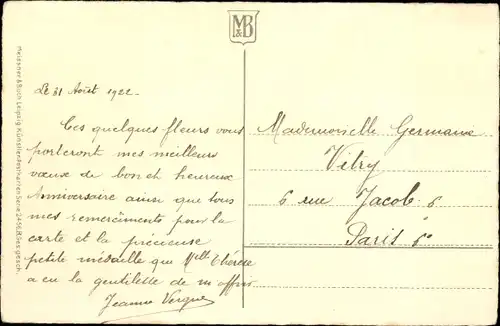 M&B
Le 31 Août 1922
Ces quelques fleurs vous
porteront mes meilleurs
vœux de bon et heureux
Anniversaire ainsi que tous
mes remerciments pour la
carte et la précieuse
petite médaille que Mlle Thérèse
a eu la gentilesse de m'offrir
Jeanne
Mademoiselle Germaine
Vitry
6 rue Jacob 6
Paris 6e
Meissner & Buch Leipzig Künstlerpostkarten Serie